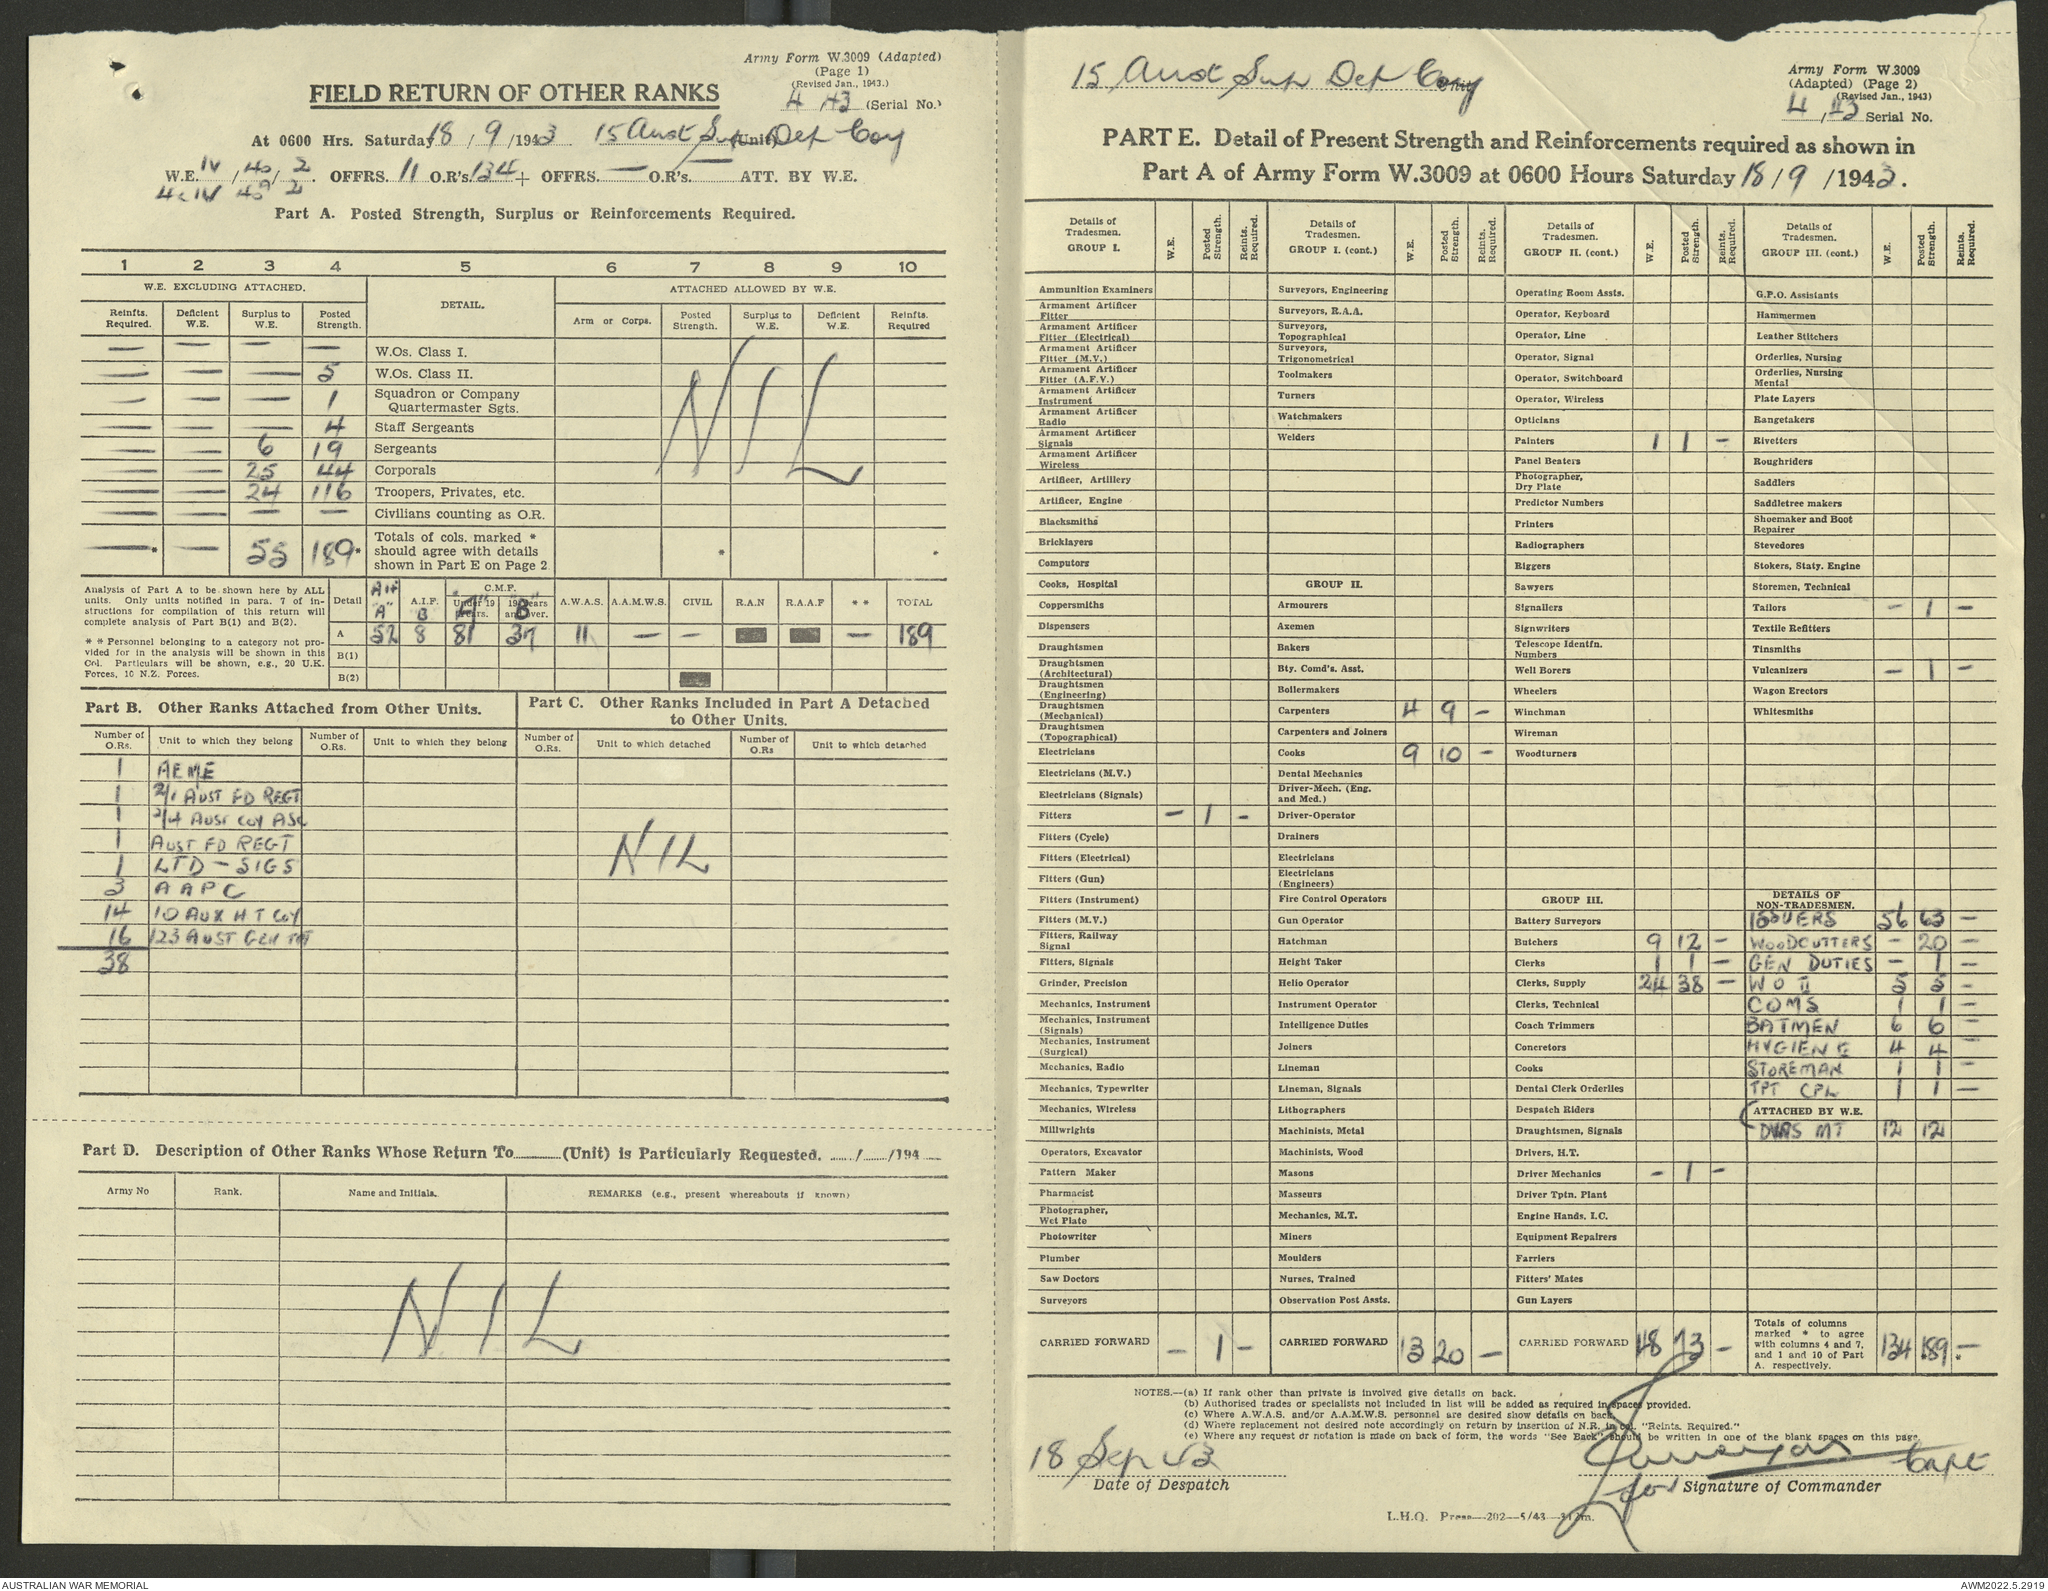 Army Form W.3009 (Adapted)
(Page 1)
(Revised Jan., 1943.)
FIELD RETURN OF OTHER RANKS
4 /43 (Serial No.)
At 0600 Hrs. Saturday 18 / 9 /1943 15 Aust Sup (Unit) Dep Coy
W.E. IV / 4a / 2 OFFRS. 11 O.R's. 134 + OFFRS. — O.R's. — ATT. BY W.E.
Part A. Posted Strength, Surplus or Reinforcements Required.
1 2 3 4 5 6 7 8 9 10
W.E. EXCLUDING ATTACHED. DETAIL. ATTACHED ALLOWED BY W.E.
Reinfts. Required. Deficient W.E. Surplus to W.E. Posted Strength. Arm or Corps. Posted Strength. Surplus to W.E. Deficient W.E. Reinfts. Required
— — — — W.Os. Class I.
— — — 5 W.Os. Class II.
— — — 1 Squadron or Company Quartermaster Sgts.
— — — 4 Staff Sergeants
— — 6 19 Sergeants
— — 25 44 Corporals
— — 24 116 Troopers, Privates, etc.
— — — — Civilians counting as O.R.
NIL
— * — 55 189 * Totals of cols. marked * should agree with details shown in Part E on Page 2 * *
Analysis of Part A to be shown here by ALL units. Only units notified in para. 7 of instructions for compilation of this return will complete analysis of Part B(1) and B(2).
* * Personnel belonging to a category not provided for in the analysis will be shown in this Col. Particulars will be shown, e.g., 20 U.K. Forces, 10 N.Z. Forces.
Detail AIF "A" A.I.F. B C.M.F. Under 19 years. "A" 19 years and over. "B" A.W.A.S. A.A.M.W.S. CIVIL R.A.N R.A.A.F * * TOTAL
A 52 8 81 37 11 — — — 189
B(1)
B(2)
Part B. Other Ranks Attached from Other Units.
Part C. Other Ranks Included in Part A Detached to Other Units.
Number of O.Rs. Unit to which they belong Number of O.Rs. Unit to which they belong Number of O.Rs. Unit to which detached Number of O.Rs Unit to which detached
1 AEME
1 2/1 AUST FD REGT
1 2/4 AUST COY ASC
1 AUST FD REGT
1 LTD – SIGS
3 AAPC
14 10 AUX H T COY
16 123 AUST GEN TPT
38
NIL
Part D. Description of Other Ranks Whose Return To (Unit) is Particularly Requested. / /194
Army No Rank. Name and Initials. REMARKS (e.g., present whereabouts if known)
NIL
15 Aust Sup Dep Coy
Army Form W.3009
(Adapted) (Page 2)
(Revised Jan., 1943)
4 /43 Serial No.
PART E. Detail of Present Strength and Reinforcements required as shown in
Part A of Army Form W.3009 at 0600 Hours Saturday 18 / 9 /1943.
Details of Tradesmen. GROUP I. W.E. Posted Strength. Reints. Required.
Ammunition Examiners
Armament Artificer Fitter
Armament Artificer Fitter (Electrical)
Armament Artificer Fitter (M.V.)
Armament Artificer Fitter (A.F.V.)
Armament Artificer Instrument
Armament Artificer Radio
Armament Artificer Signals
Armament Artificer Wireless
Artificer, Artillery
Artificer, Engine
Blacksmiths
Bricklayers
Computors
Cooks, Hospital
Coppersmiths
Dispensers
Draughtsmen
Draughtsmen (Architectural)
Draughtsmen (Engineering)
Draughtsmen (Mechanical)
Draughtsmen (Topographical)
Electricians
Electricians (M.V.)
Electricians (Signals)
Fitters — 1 —
Fitters (Cycle)
Fitters (Electrical)
Fitters (Gun)
Fitters (Instrument)
Fitters (M.V.)
Fitters, Railway Signal
Fitters, Signals
Grinder, Precision
Mechanics, Instrument
Mechanics, Instrument (Signals)
Mechanics, Instrument (Surgical)
Mechanics, Radio
Mechanics, Typewriter
Mechanics, Wireless
Millwrights
Operators, Excavator
Pattern Maker
Pharmacist
Photographer, Wet Plate
Photowriter
Plumber
Saw Doctors
Surveyors
CARRIED FORWARD — 1 —
Details of Tradesmen. GROUP I. (cont.) W.E. Posted Strength. Reints. Required.
Surveyors, Engineering
Surveyors, R.A.A.
Surveyors, Topographical
Surveyors, Trigonometrical
Toolmakers
Turners
Watchmakers
Welders
GROUP II.
Armourers
Axemen
Bakers
Bty. Comd's. Asst.
Boilermakers
Carpenters 4 9 —
Carpenters and Joiners
Cooks 9 10 —
Dental Mechanics
Driver-Mech. (Eng. and Med.)
Driver-Operator
Drainers
Electricians
Electricians (Engineers)
Fire Control Operators
Gun Operator
Hatchman
Height Taker
Helio Operator
Instrument Operator
Intelligence Duties
Joiners
Lineman
Lineman, Signals
Lithographers
Machinists, Metal
Machinists, Wood
Masons
Masseurs
Mechanics, M.T.
Miners
Moulders
Nurses, Trained
Observation Post Assts.
CARRIED FORWARD 13 20 —
Details of Tradesmen. GROUP II. (cont.) W.E. Posted Strength. Reints. Required.
Operating Room Assts.
Operator, Keyboard
Operator, Line
Operator, Signal
Operator, Switchboard
Operator, Wireless
Opticians
Painters 1 1 —
Panel Beaters
Photographer, Dry Plate
Predictor Numbers
Printers
Radiographers
Riggers
Sawyers
Signallers
Signwriters
Telescope Identfn. Numbers
Well Borers
Wheelers
Winchman
Wireman
Woodturners
GROUP III.
Battery Surveyors
Butchers 9 12 —
Clerks 1 1 —
Clerks, Supply 24 38 —
Clerks, Technical
Coach Trimmers
Concretors
Cooks
Dental Clerk Orderlies
Despatch Riders
Draughtsmen, Signals
Drivers, H.T.
Driver Mechanics — 1 —
Driver Tptn. Plant
Engine Hands, I.C.
Equipment Repairers
Farriers
Fitters' Mates
Gun Layers
CARRIED FORWARD 48 73 —
Details of Tradesmen. GROUP III. (cont.) W.E. Posted Strength. Reints. Required.
G.P.O. Assistants
Hammermen
Leather Stitchers
Orderlies, Nursing
Orderlies, Nursing Mental
Plate Layers
Rangetakers
Rivetters
Roughriders
Saddlers
Saddletree makers
Shoemaker and Boot Repairer
Stevedores
Stokers, Staty. Engine
Storemen, Technical
Tailors — 1 —
Textile Refitters
Tinsmiths
Vulcanizers — 1 —
Wagon Erectors
Whitesmiths
DETAILS OF NON-TRADESMEN.
ISSUERS 56 63 —
WOODCUTTERS — 20 —
GEN DUTIES — 1 —
W O II 5 5 —
CQMS 1 1 —
BATMEN 6 6 —
HYGIENE 4 4 —
STOREMAN 1 1 —
TPT CPL 1 1 —
ATTACHED BY W.E.
DVRS MT 12 12
Totals of columns marked * to agree with columns 4 and 7, and 1 and 10 of Part A. respectively. 134 189 — *
NOTES.—(a) If rank other than private is involved give details on back.
(b) Authorised trades or specialists not included in list will be added as required in spaces provided.
(c) Where A.W.A.S. and/or A.A.M.W.S. personnel are desired show details on back.
(d) Where replacement not desired note accordingly on return by insertion of N.R. in col. "Reints. Required."
(e) Where any request or notation is made on back of form, the words "See Back" should be written in one of the blank spaces on this page.
18 Sep 43
Date of Despatch
Capt
for Signature of Commander
L.H.Q. Press—202—5/43
AUSTRALIAN WAR MEMORIAL
AWM2022.5.2919